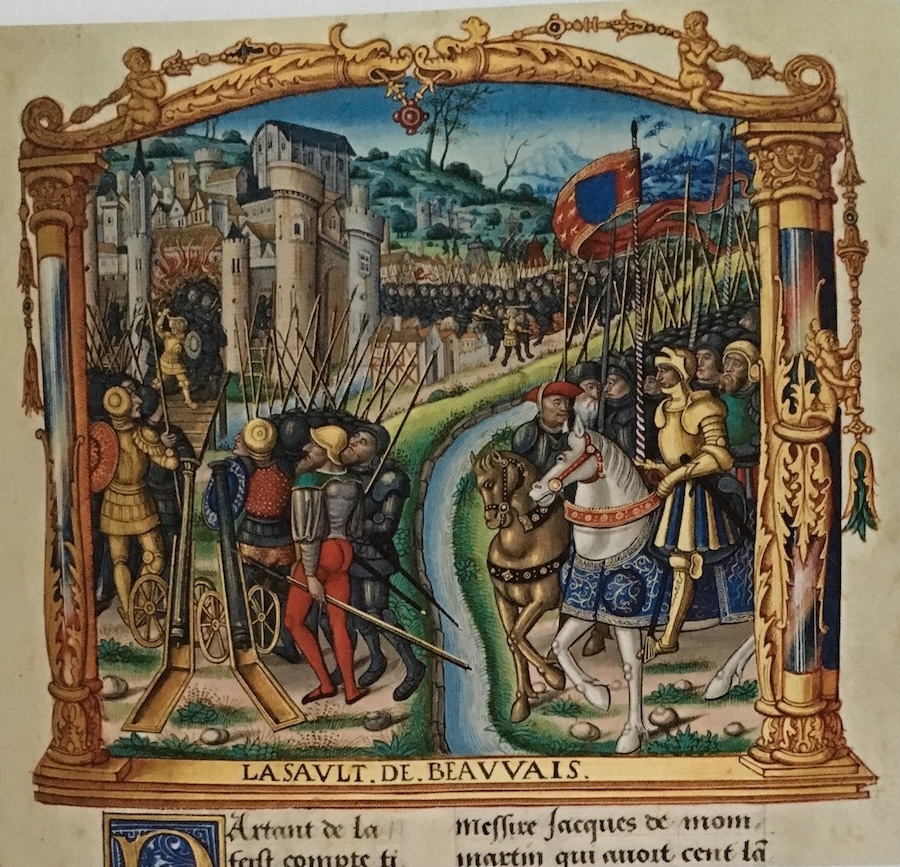 LASAVLT.DE.BEAVVAIS.
PArtant de la
ferst compte ti
messire Jacques de mom
martin qui auoit cent lã